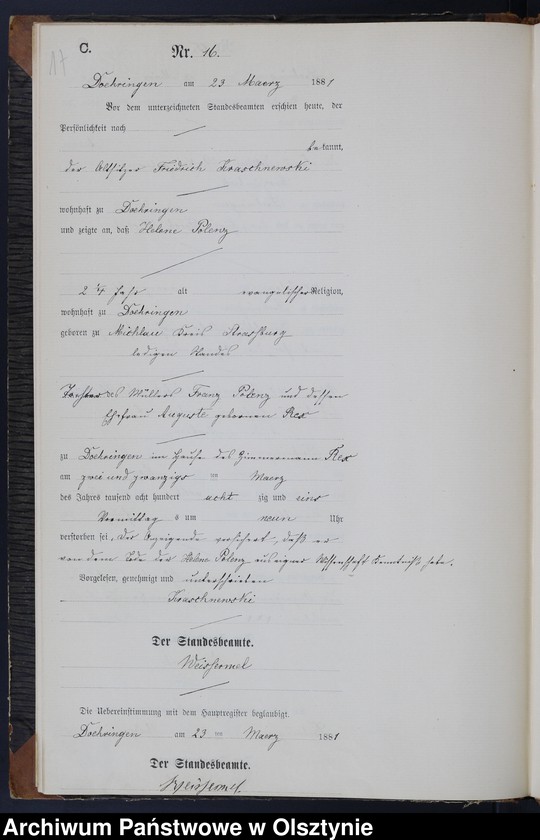 17
C.
Nr. 16.
Doehringen am 23 Maerz 1881
Vor dem unterzeichneten Standesbeamten erschien heute, der
Persönlichkeit nach
bekannt,
der Altsitzer Friedrich Kraschnewski
wohnhaft zu Doehringen
und zeigte an, daß Helene Polenz
2 1/4 Jahr alt evangelischer Religion,
wohnhaft zu Doehringen
geboren zu Michlau Kreis Strassburg
ledigen Standes
Tochter des Müllers Franz Polenz und dessen
Ehefrau Auguste gebornen Rex
zu Doehringen im Hause des Zimmermann Rex
am zwei und zwanzigs ten Maerz
des Jahres tausend acht hundert acht zig und eins
Vormittag s um neun Uhr
verstorben sei, der Anzeigende versichert, daß er
von dem Tode der Helene Polenz aus eigner Wissenschaft Kenntniß habe.
Vorgelesen, genehmigt und unterschrieben
Kraschnewski
Der Standesbeamte.
Weissermel
Die Uebereinstimmung mit dem Hauptregister beglaubigt.
Doehringen am 23 ten Maerz 1881
Der Standesbeamte.
Weissermel.
Archiwum Państwowe w Olsztynie